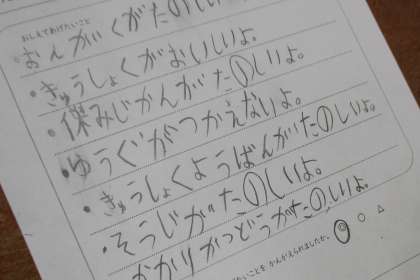 おしえてあげたいこと
おんがくがたのしいよ。
・きゅうしょくがおいしいよ。
・休みじかんがたのしいよ。
・ゆうぐがつかえないよ。
・きゅうしょくようばんがたのしいよ。
・そうじがたのしいよ。
かかりかつどうがたのしいよ。
たいことをかんがえられましたか。 ◎ ○ △